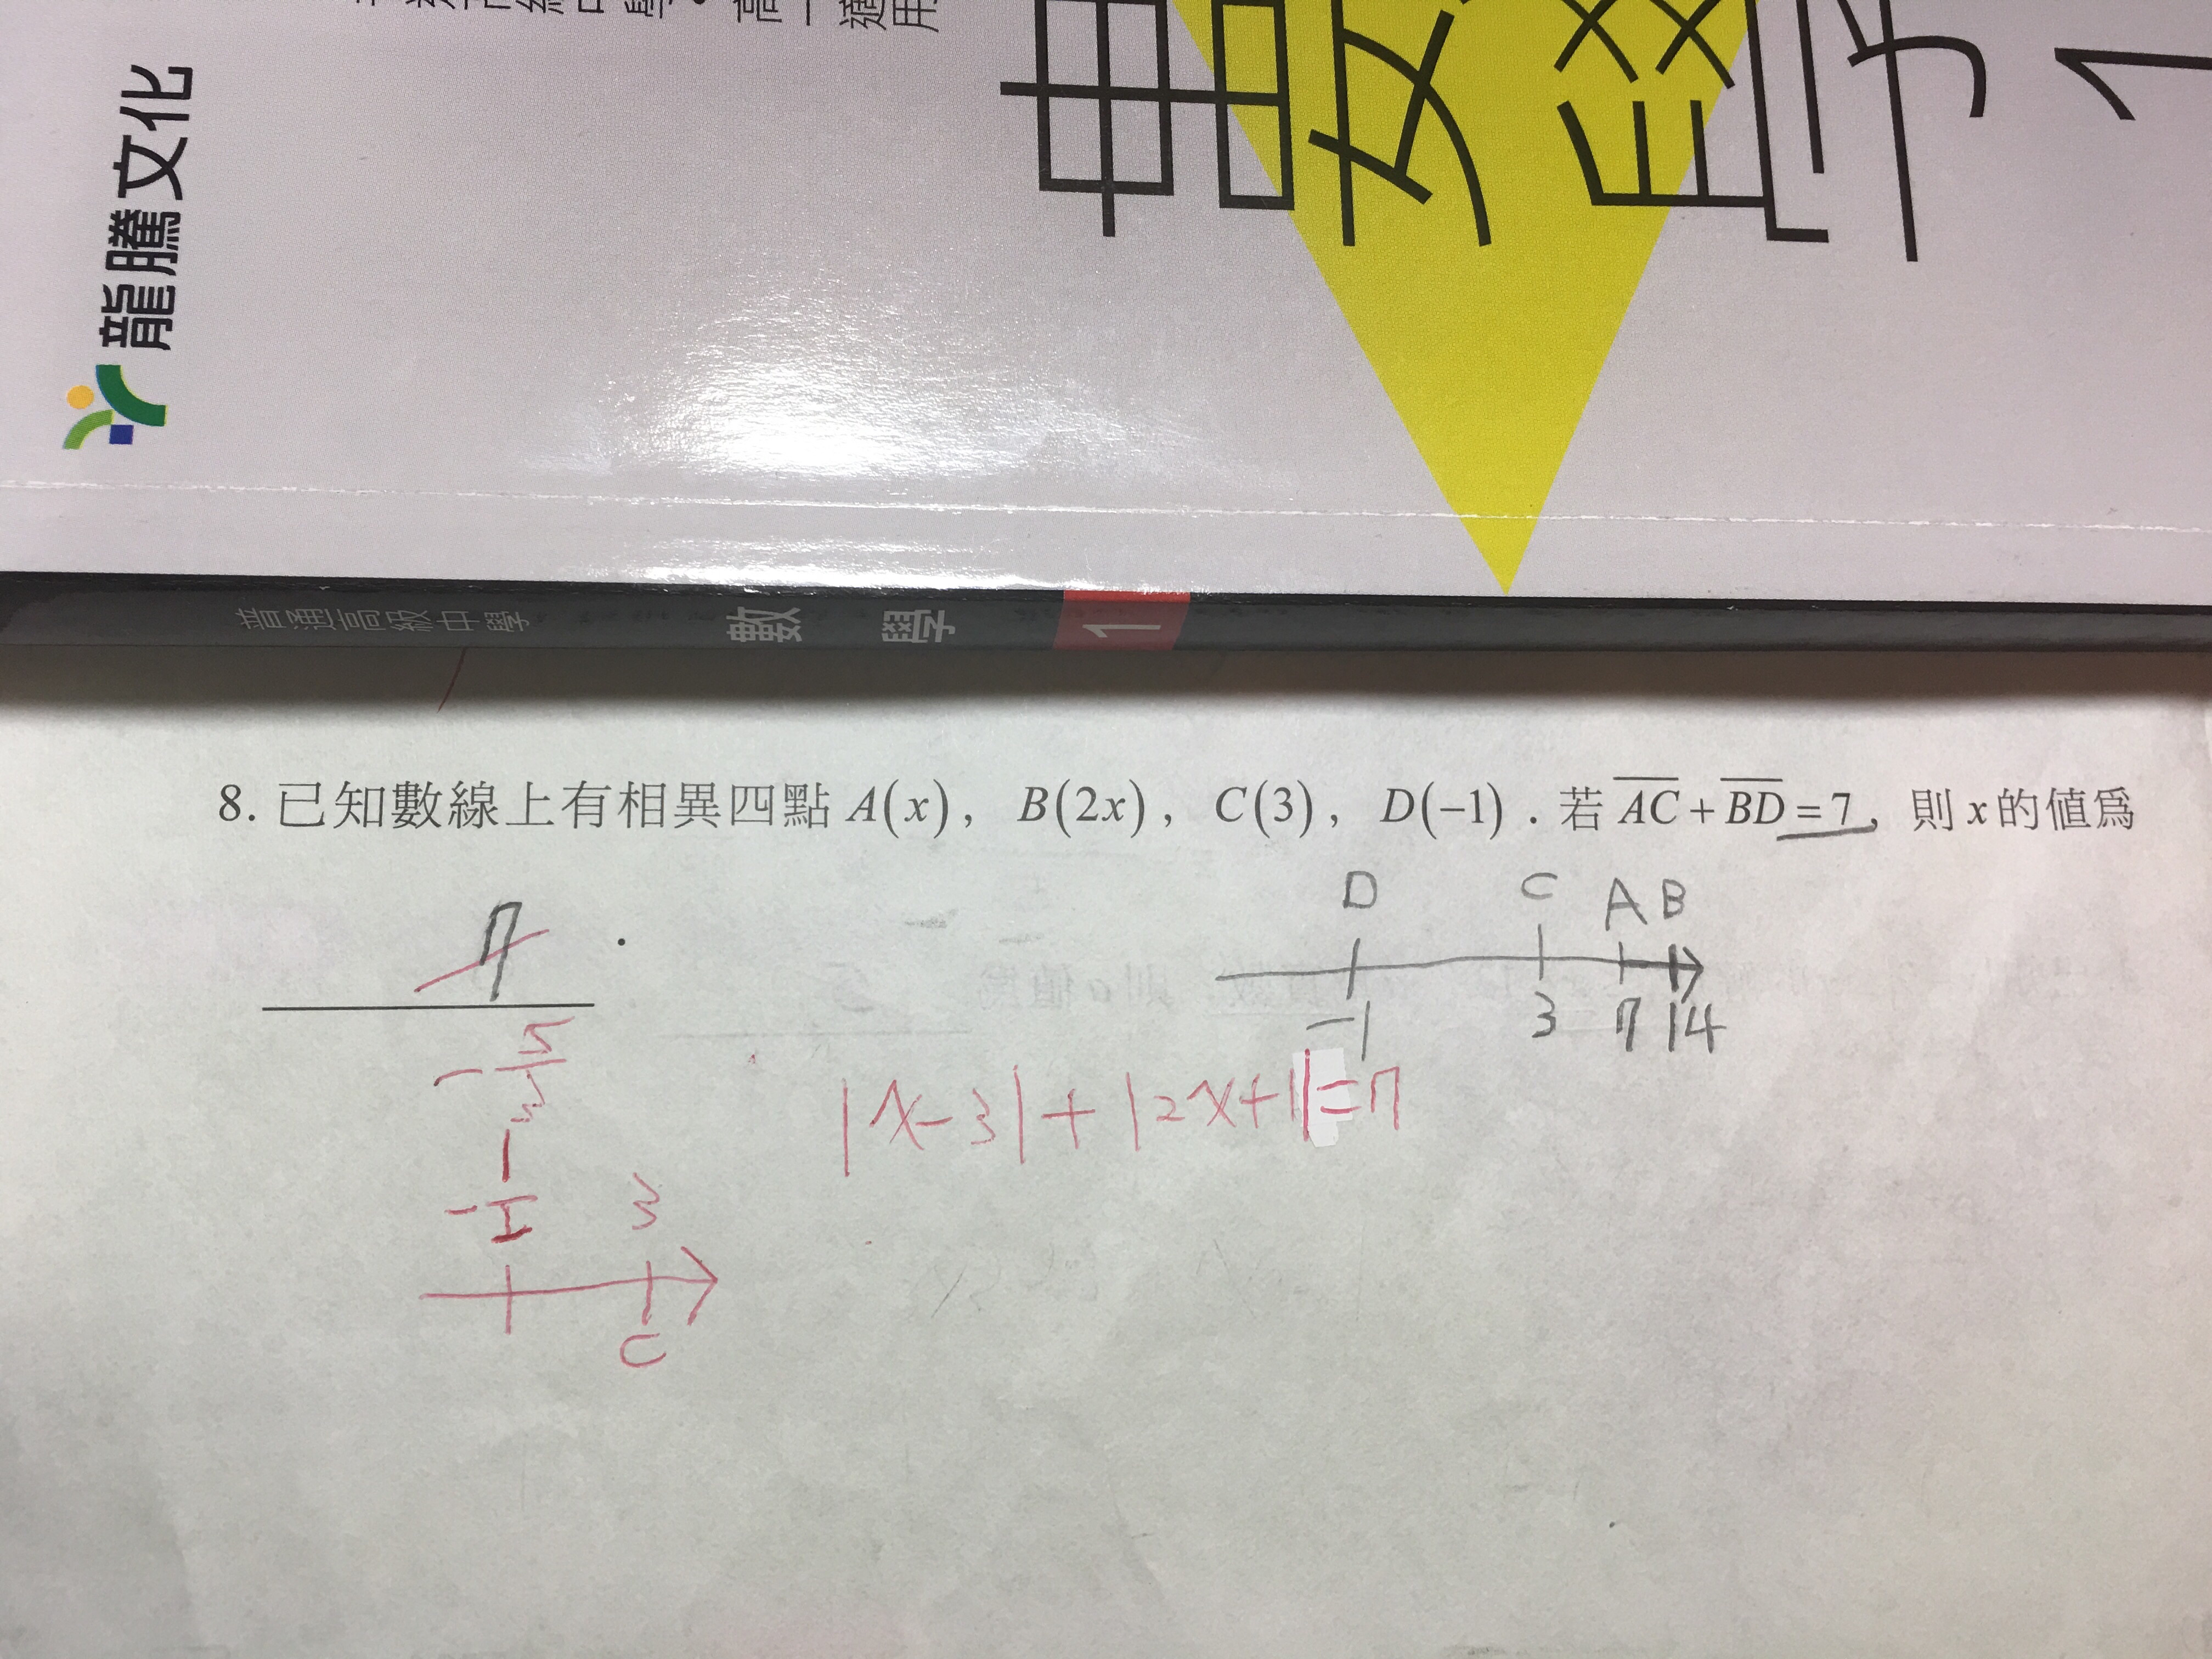 龍騰文化
高一適用
數學 1
普通高級中學 數 學 1
8. 已知數線上有相異四點 A(x)， B(2x)， C(3)， D(−1)．若 AC + BD = 7，則 x 的值為
7 ．
D C A B
−1 3 7 14
|x−3|+|2x+1|=7
3
C